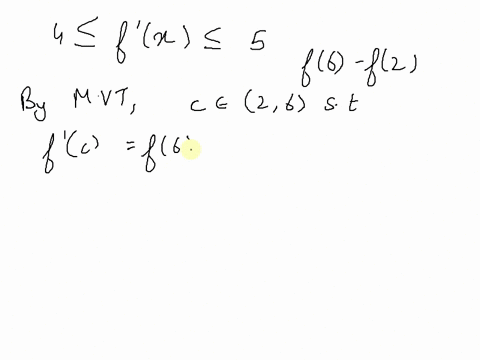 4 ≤ f'(x) ≤ 5
f(6) - f(2)
By M.VT, c ∈ (2,6) s.t
f'(c) = f(6)